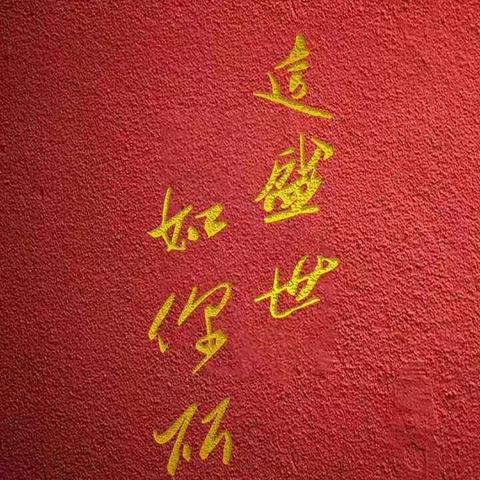 這盛世
如你所